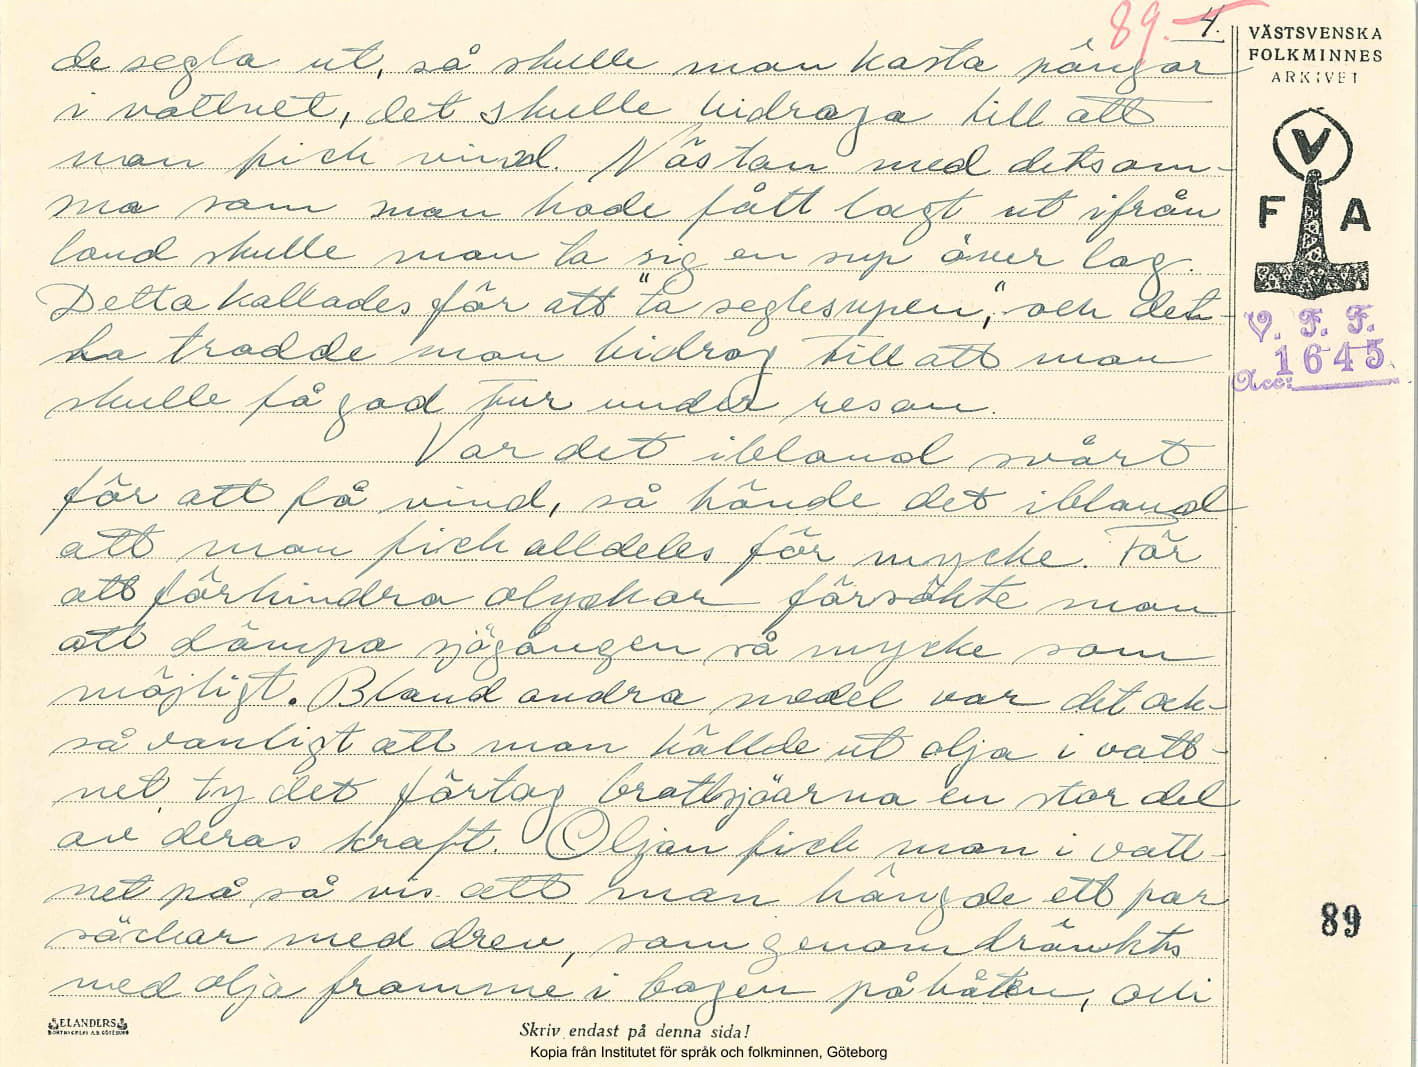 89. 4.
VÄSTSVENSKA
FOLKMINNES
ARKIVET
V
F A
V. F. F.
1645
Acc:
de segla ut, så skulle man kasta pängar
i vattnet, det skulle bidraga till att
man fick vind. Nästan med detsam-
ma som man hade fått lagt ut ifrån
land skulle man ta sig en sup över lag.
Detta kallades för att "ta seglesupen", och det-
ta trodde man bidrog till att man
skulle få god tur under resan.
Var det ibland svårt
för att få vind, så hände det ibland
att man fick alldeles för mycke. För
att förhindra olyckor försökte man
att dämpa sjögången så mycke som
möjligt. Bland andra medel var det ock-
så vanligt att man hällde ut olja i vatt-
net, ty det förtog brottsjöarna en stor del
av deras kraft. Oljan fick man i vatt-
net på så vis att man hängde ett par
säckar med drev, som genomdränkts
med olja framme i bogen på båten, och
89
ELANDERS
BOKTRYCKERI A.B. GÖTEBORG
Skriv endast på denna sida!
Kopia från Institutet för språk och folkminnen, Göteborg